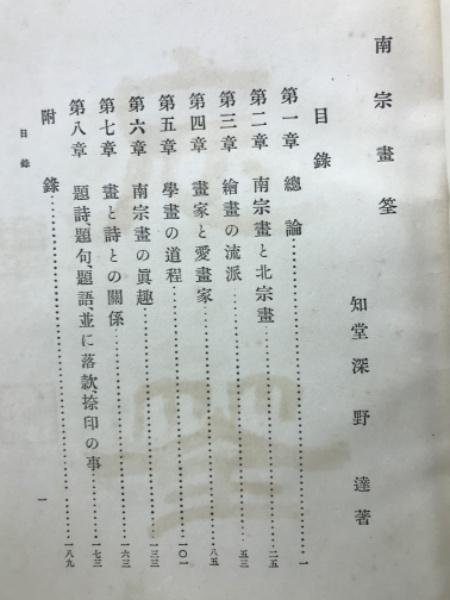 南宗畫筌
知堂深野達著
目錄
第一章 總論……一
第二章 南宗畫と北宗畫……二五
第三章 繪畫の流派……五三
第四章 畫家と愛畫家……八五
第五章 學畫の道程……一〇一
第六章 南宗畫の眞趣……一三三
第七章 畫と詩との關係……一六三
第八章 題詩、題句、題語、並に落款、捺印の事……一七三
附錄……一八九
目錄
一